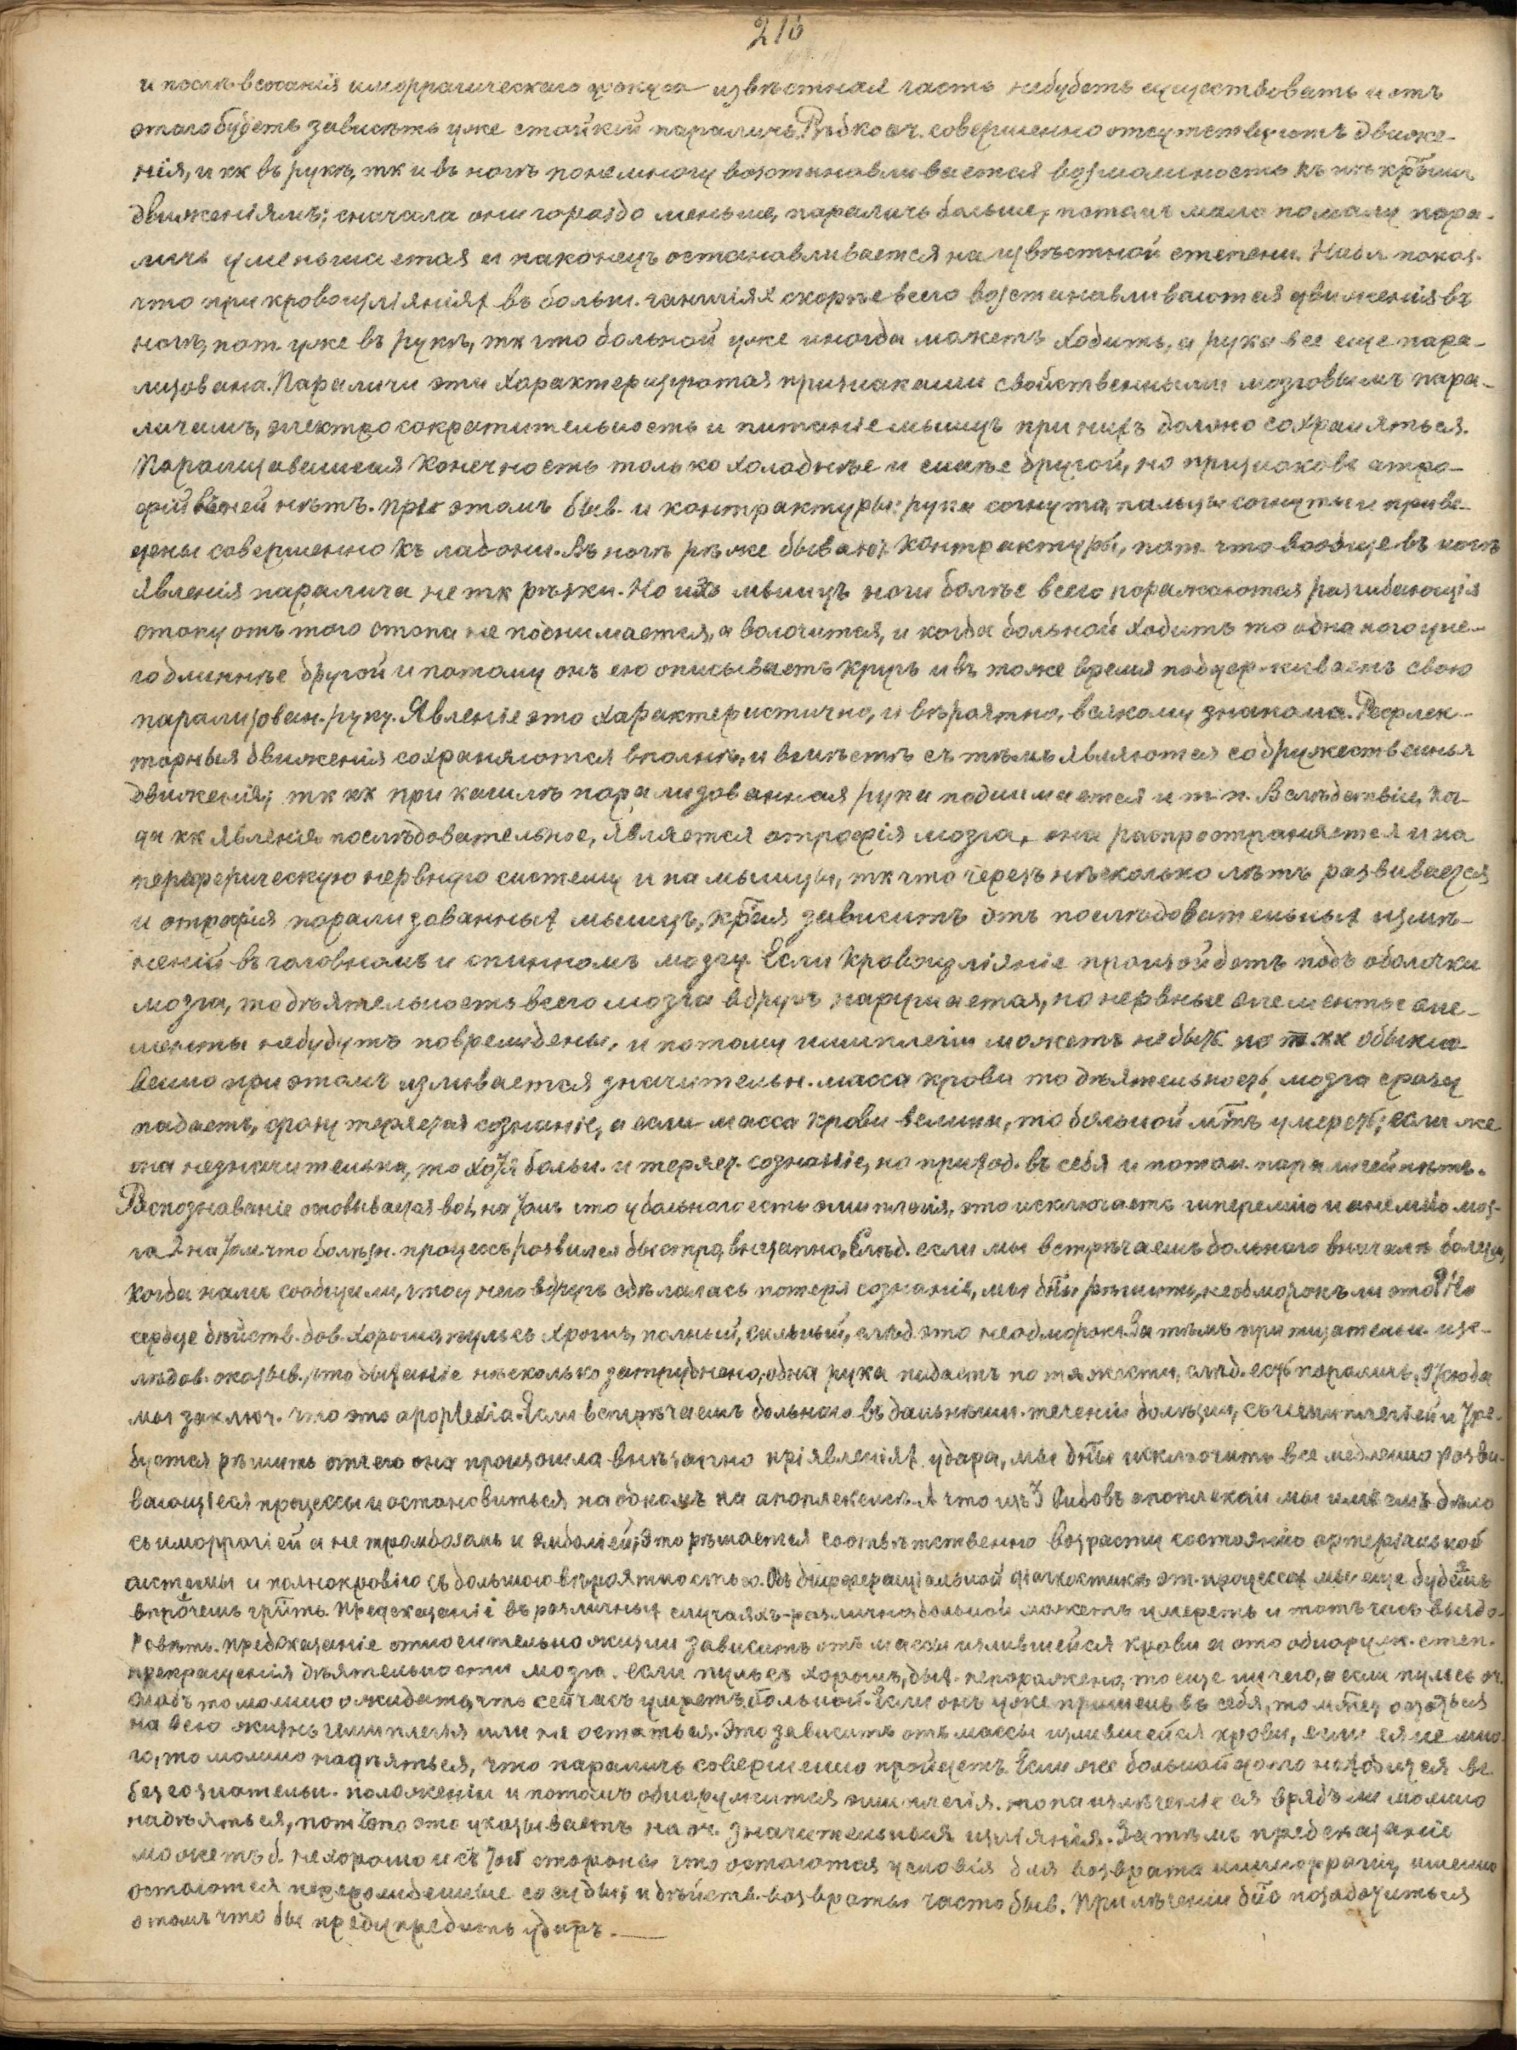 216
и послѣ всосанія иморрагическаго фокуса извѣстная часть небудетъ существовать и отъ
этаго будетъ зависѣть уже стойкій параличъ. Рѣдко оч. совершенно отсутствуютъ движе-
нія, и кк въ рукѣ, тк и въ ногѣ понемногу возстановливается возможность къ
движеніямъ; сначала они гораздо меньше, параличъ больше, потомъ мало помалу пара-
личъ уменьшается и наконецъ останавливается на извѣстной степени. Набл. показ.
что при кровоизліяніях въ больш. гангліях скорѣе всего возстанавливаются движенія въ
ногѣ, пот. уже въ рукѣ, тк что больной уже иногда можетъ ходить, а рука все еще пара-
лизована. Параличи эти характеризуются признаками свойственными мозговымъ пара-
личамъ, электросократительность и питаніе мышцъ при нихъ должно сохраняться.
Парализовавшаяся конечность только холоднѣе и синѣе другой, но признаковъ атро-
фіи въ ней нѣтъ. При этомъ быв. и контрактуры: рука согнута, пальцы согнуты и приве-
дены совершенно къ ладони. Въ ногѣ рѣже бываютъ контрактуры, пот. что вообще въ ногѣ
явленія паралича не тк рѣзки. Но изъ мышцъ ноги болѣе всего поражаются разгибающія
стопу отъ того стопа не поднимается, а волочится, и когда больной ходитъ то одна нога у не-
го длиннѣе другой и потому онъ ею описываетъ кругъ и въ тоже время поддерживаетъ свою
парализован. руку. Явленіе это характеристично, и вѣроятно, всякому знакомо. Рефлек-
торныя движенія сохраняются вполнѣ, и вмѣстѣ съ тѣмъ являются содружественныя
движенія; тк кк при кашлѣ парализованная рука поднимается и т. п. Вслѣдствіи, ко-
гда кк явленіе послѣдовательное, является атрофія мозга, она распространяется и на
периферическую нервную систему и на мышцы, тк что черезъ нѣсколько лѣтъ развивается
и атрофія парализованных мышцъ, края зависитъ отъ послѣдовательных измѣ-
неній въ головномъ и спинномъ мозгу. Если кровоизліяніе произойдетъ подъ оболочки
мозга, то дѣятельность всего мозга вдругъ нарушается, но нервные элементы эле-
менты небудутъ повреждены, и потому гемиплегіи можетъ небыть. но т. кк обыкно-
венно при этомъ изливается значительн. масса крови то дѣятельность мозга сразу
падаетъ, сразу теряется сознаніе, а если масса крови велика, то больной мтъ умереть; если же
она незначительна, то хотя больн. и теряет. сознаніе, но приход. въ себя и потом. параличей нѣтъ.
Распознаваніе основывается на том что у больного есть гемиплегія, это исключаетъ гиперемію и анемію моз-
га 2 на том что болѣзн. процессъ развился быстро, внезапно. Слѣд. если мы встрѣчаемъ больного вначалѣ болѣзни,
когда намъ сообщили, что у него вдругъ сдѣлалась потеря сознанія, мы дны рѣшить, необморокъ ли это? Но
сердце дѣйств. дов. хорошо, пульсъ хрошъ, полный, сильный, слѣд. это необморокъ. За тѣмъ при тщательн. изс-
лѣдов. оказыв., что дыханіе нѣсколько затруднено, одна рука падаетъ по тяжести, слѣд. есть параличъ. Отсюда
мы заключ. что это apoplexia. Если встрѣчаемъ больнаго въ дальнѣйш. теченіи болѣзни, съ гемиплегіей и тре-
буется рѣшить отчего она произошла внезапно при явленіях удара, мы дны исключить все медленно разви-
вающіеся процессы и остановиться на одномъ на апоплексіи. А что изъ 3 видовъ апоплексіи мы имѣемъ дѣло
съ иморрагіей а не тромбозамъ и эмболіей; это рѣшается соотвѣтственно возрасту состоянію артеріальной
системы и полнокровію съ большою вѣроятностью. Въ дифференціальной діагностикѣ эт. процессов мы еще будемъ
впрочемъ грить. Предсказаніе въ различных случаяхъ различно: больной можетъ умереть и тотъ часъ выздо-
ровѣть. Предсказаніе относительно жизни зависитъ отъ массы излившейся крови а это обнаруж. степ.
прекращенія дѣятельности мозга. если пульсъ хорошъ, дых. непоражено, то еще ничего, а если пульсъ оч.
слабъ то можно ожидать, что сейчасъ умретъ больной. Если онъ уже пришелъ въ себя, то мжет остаться
на всю жизнь гемиплегія или не остаться. Это зависитъ отъ массы излившейся крови, если ея не мно-
го, то можно надѣяться, что параличъ совершенно пройдетъ. Если же больной долго находится въ
безсознательн. положеніи и потомъ обнаружится гемиплегія. то на излѣченіе ея врядъ ли можно
надѣяться, пот. что это указываетъ на оч. значительныя изліянія. За тѣмъ предсказаніе
можетъ б. нехорошо и съ той стороны что остаются условія для возврата иморрагіи, именно
остаются перерожденные сосуды; и дѣйств. возвраты часто быв. При лѣченіи дно позаботиться
о томъ что бы предупредить ударъ.